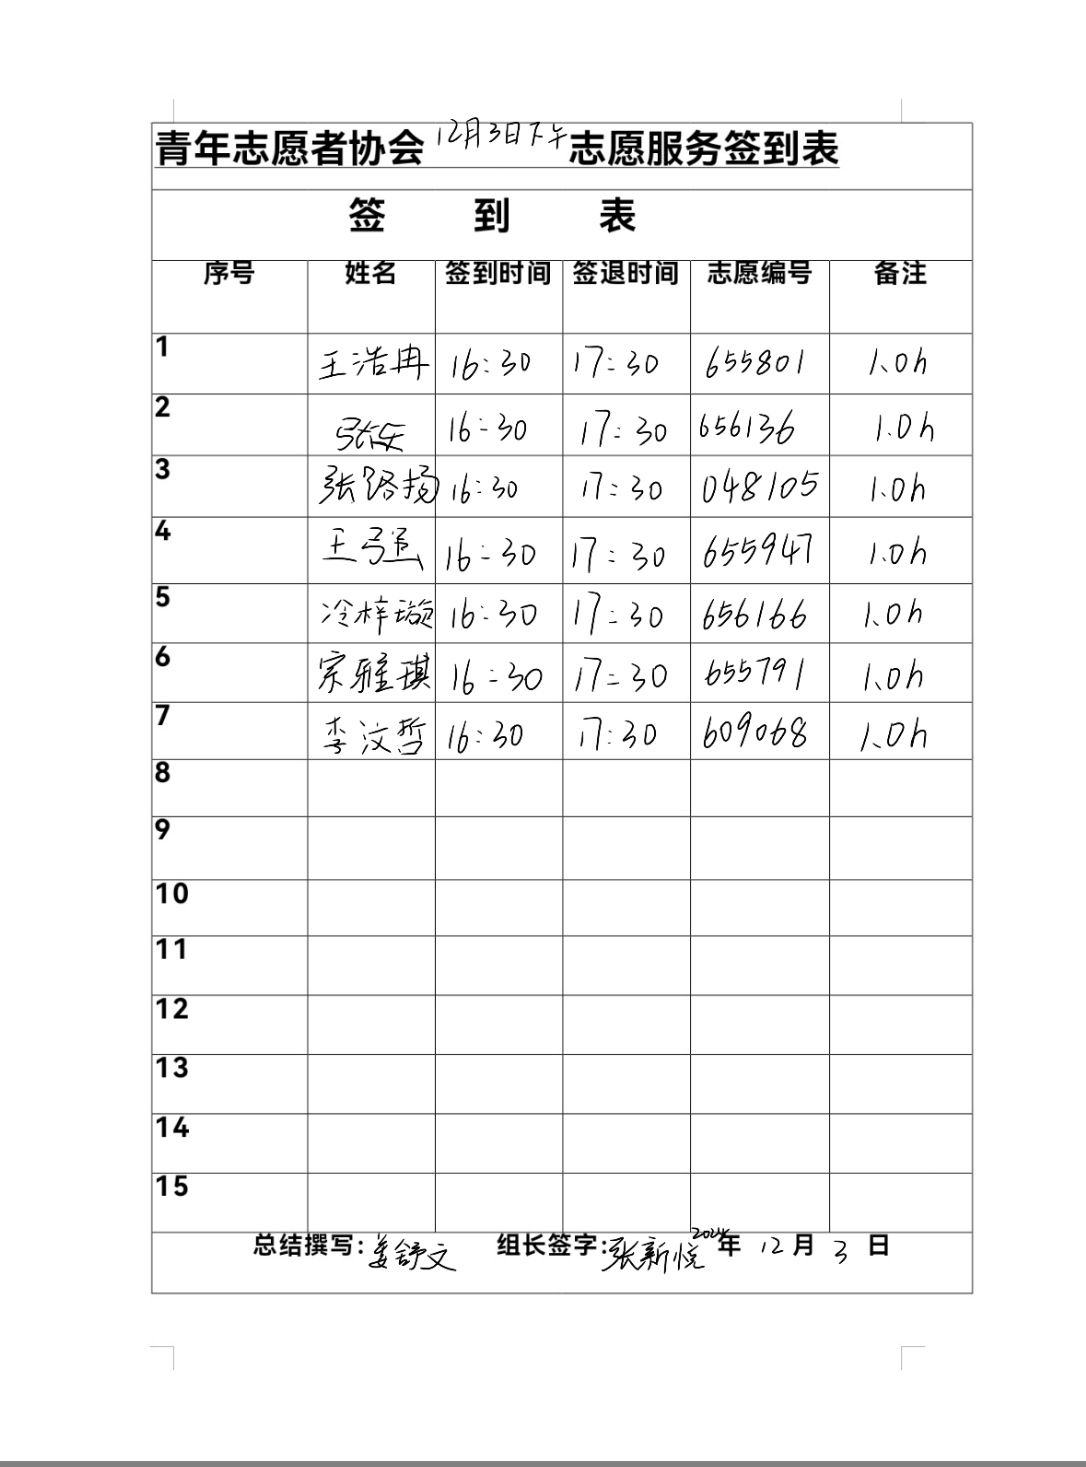 青年志愿者协会12月3日下午志愿服务签到表
签 到 表
序号 姓名 签到时间 签退时间 志愿编号 备注
1 王浩冉 16:30 17:30 655801 1.0h
2 张乐 16:30 17:30 656136 1.0h
3 张路扬 16:30 17:30 048105 1.0h
4 王 16:30 17:30 655947 1.0h
5 冷梓璇 16:30 17:30 656166 1.0h
6 宗雅琪 16:30 17:30 655791 1.0h
7 李汶哲 16:30 17:30 609068 1.0h
8
9
10
11
12
13
14
15
总结撰写：姜舒文 组长签字：张新悦 2024年 12月 3日